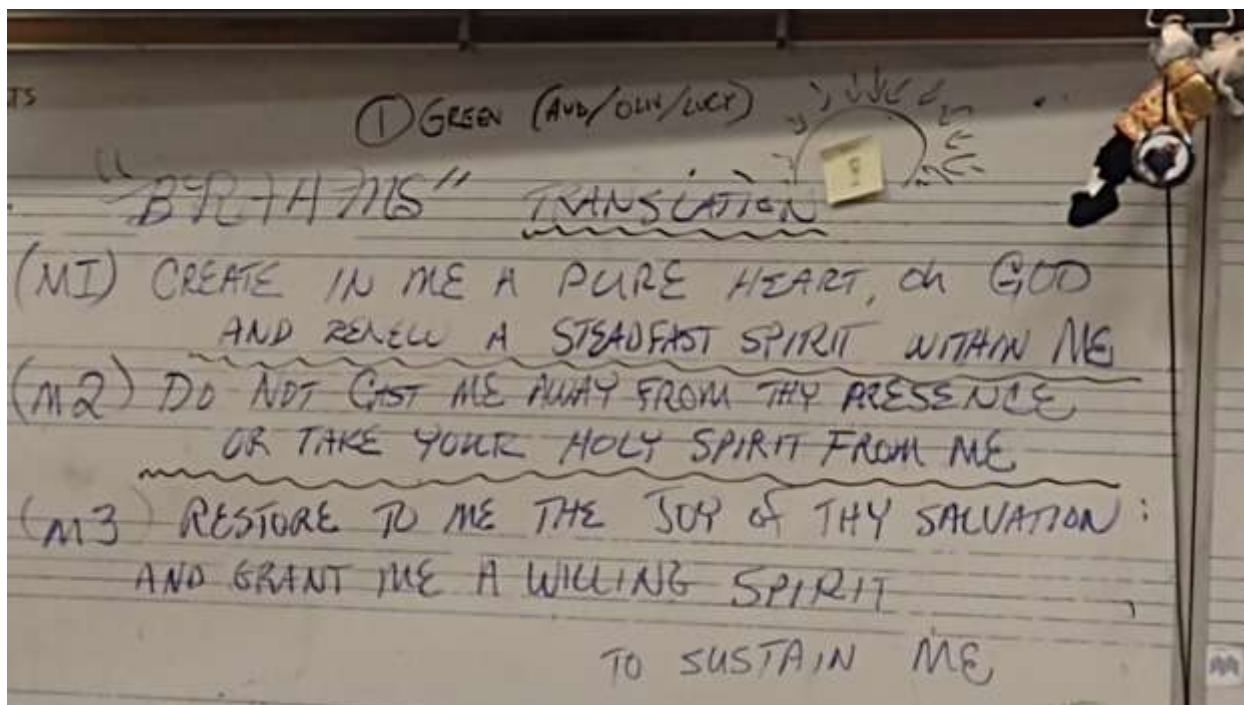 TS
① GREEN (AUD/OLIV/LUCY)
"BRAHMS" TRANSLATION
(M1) CREATE IN ME A PURE HEART, Oh GOD
AND RENEW A STEADFAST SPIRIT WITHIN ME
(M2) DO NOT CAST ME AWAY FROM THY PRESENCE
OR TAKE YOUR HOLY SPIRIT FROM ME
(M3) RESTORE TO ME THE JOY of THY SALVATION:
AND GRANT ME A WILLING SPIRIT
TO SUSTAIN ME